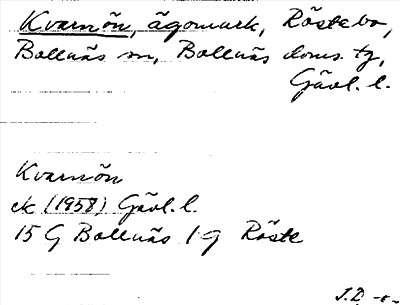 Kvarnön, ägomark, Röstebo,
Bollnäs sn, Bollnäs doms. tg,
Gävl. l.
Kvarnön
ek (1958) Gävl. l.
15 G Bollnäs 1 g Röste
J.D.